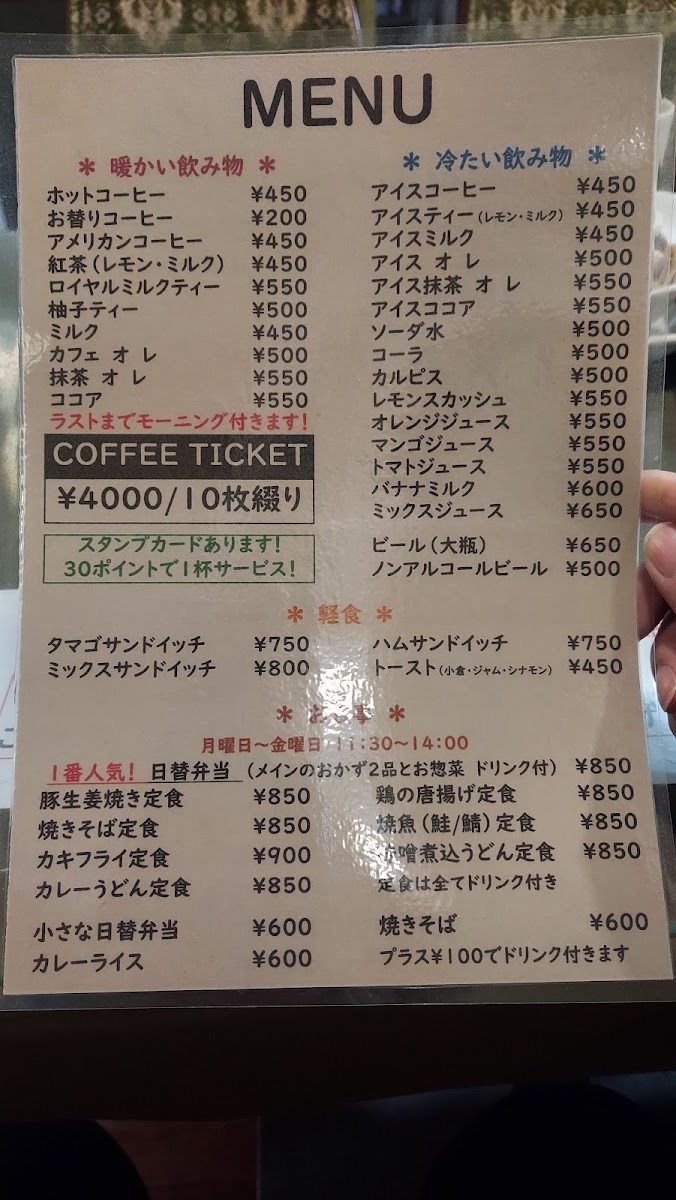 MENU
＊ 暖かい飲み物 ＊
ホットコーヒー ¥450
お替りコーヒー ¥200
アメリカンコーヒー ¥450
紅茶（レモン・ミルク） ¥450
ロイヤルミルクティー ¥550
柚子ティー ¥500
ミルク ¥450
カフェ オ レ ¥500
抹茶 オ レ ¥550
ココア ¥550
ラストまでモーニング付きます！
COFFEE TICKET
¥4000/10枚綴り
スタンプカードあります！
30ポイントで1杯サービス！
＊ 冷たい飲み物 ＊
アイスコーヒー ¥450
アイスティー（レモン・ミルク） ¥450
アイスミルク ¥450
アイス オ レ ¥500
アイス抹茶 オ レ ¥550
アイスココア ¥550
ソーダ水 ¥500
コーラ ¥500
カルピス ¥500
レモンスカッシュ ¥550
オレンジジュース ¥550
マンゴジュース ¥550
トマトジュース ¥550
バナナミルク ¥600
ミックスジュース ¥650
ビール（大瓶） ¥650
ノンアルコールビール ¥500
＊ 軽食 ＊
タマゴサンドイッチ ¥750
ミックスサンドイッチ ¥800
ハムサンドイッチ ¥750
トースト（小倉・ジャム・シナモン） ¥450
＊ お食事 ＊
月曜日〜金曜日 11:30〜14:00
1番人気！ 日替弁当 （メインのおかず2品とお惣菜 ドリンク付） ¥850
豚生姜焼き定食 ¥850
焼きそば定食 ¥850
カキフライ定食 ¥900
カレーうどん定食 ¥850
鶏の唐揚げ定食 ¥850
焼魚（鮭/鯖）定食 ¥850
味噌煮込うどん定食 ¥850
定食は全てドリンク付き
小さな日替弁当 ¥600
カレーライス ¥600
焼きそば ¥600
プラス¥100でドリンク付きます